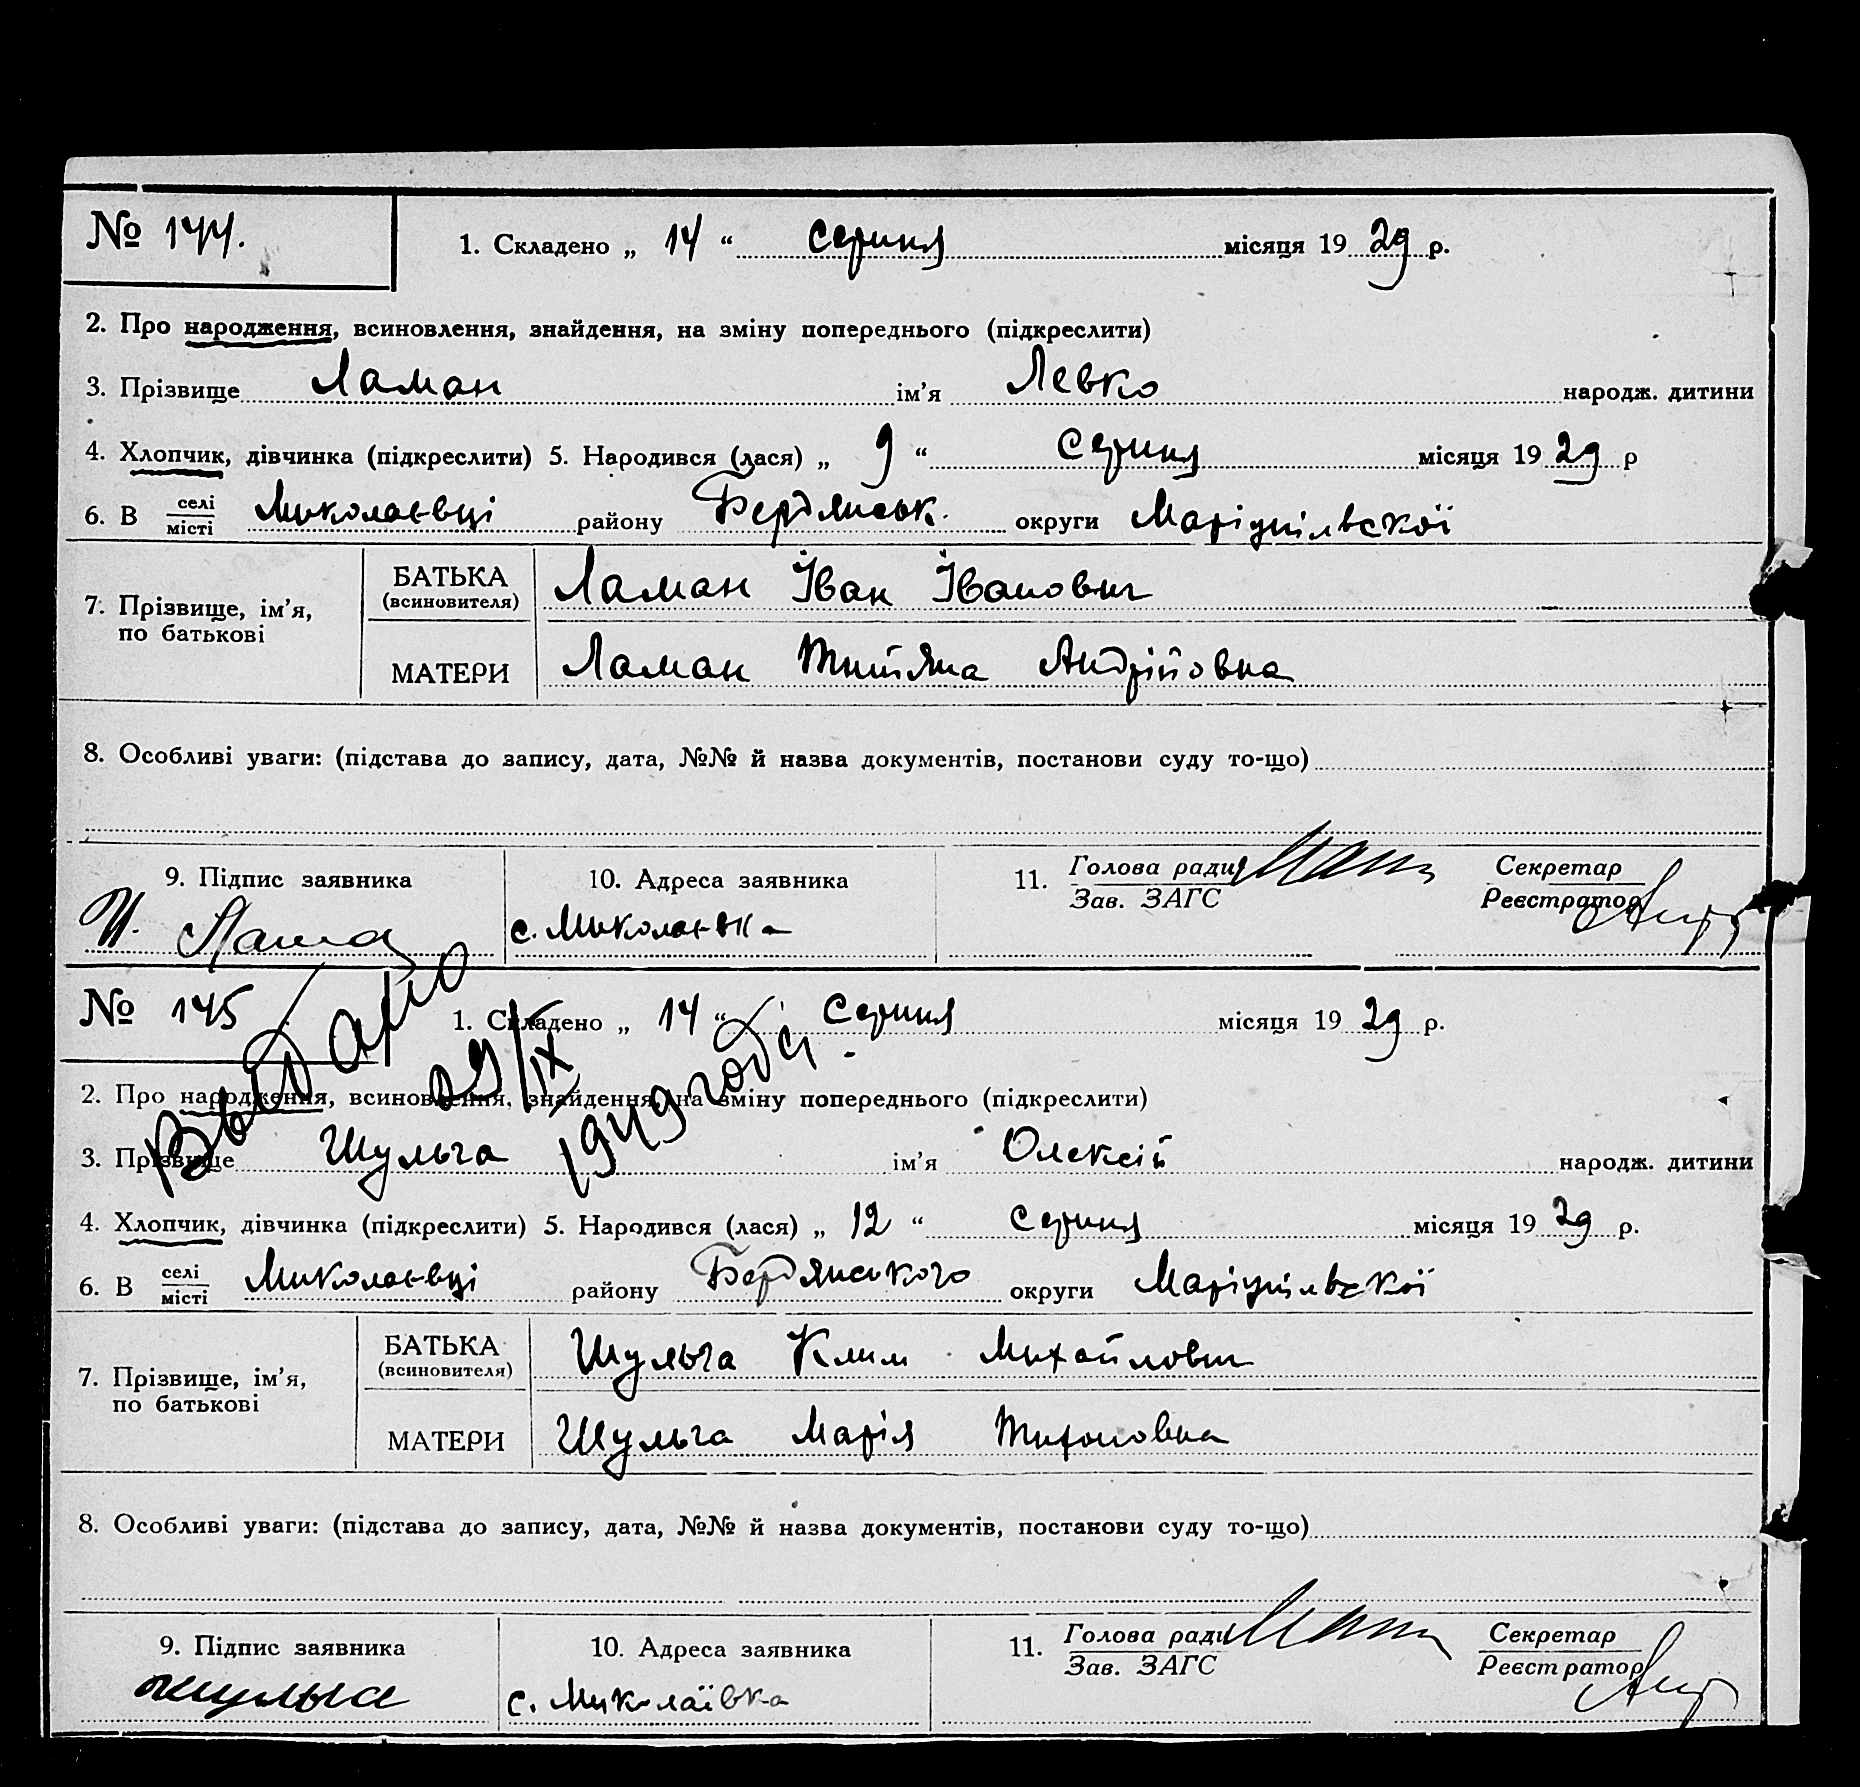 № 144.
1. Складено „ 14 “ серпня місяця 1929 р.
2. Про народження, всиновлення, знайдення, на зміну попереднього (підкреслити)
3. Прізвище Ламан ім’я Левко народж. дитини
4. Хлопчик, дівчинка (підкреслити) 5. Народився (лася) „ 9 “ Серпня місяця 1929 р
6. В селі місті Миколаєвці району Бердянськ. округи Маріупільвської
7. Прізвище, ім’я, по батькові
БАТЬКА (всиновителя) Ламан Іван Іванович
МАТЕРИ Ламан Титяна Андрійовна
8. Особливі уваги: (підстава до запису, дата, №№ й назва документів, постанови суду то-що)
9. Підпис заявника
10. Адреса заявника
11. Голова ради Зав. ЗАГС
Секретар Реєстратор
с. Миколаєвка
№ 145
1. Складено „ 14 “ Серпня місяця 1929 р.
Выдано 29/IX 1949 года.
2. Про народження, всиновлення, знайдення, на зміну попереднього (підкреслити)
3. Прізвище Шульга ім’я Олексій народж. дитини
4. Хлопчик, дівчинка (підкреслити) 5. Народився (лася) „ 12 “ серпня місяця 1929 р.
6. В селі місті Миколаєвці району Бердянського округи Маріупільвської
7. Прізвище, ім’я, по батькові
БАТЬКА (всиновителя) Шульга Клим Михайлович
МАТЕРИ Шульга Марія Тихоновна
8. Особливі уваги: (підстава до запису, дата, №№ й назва документів, постанови суду то-що)
9. Підпис заявника
10. Адреса заявника
11. Голова ради Зав. ЗАГС
Секретар Реєстратор
Шульга
с. Миколаївка